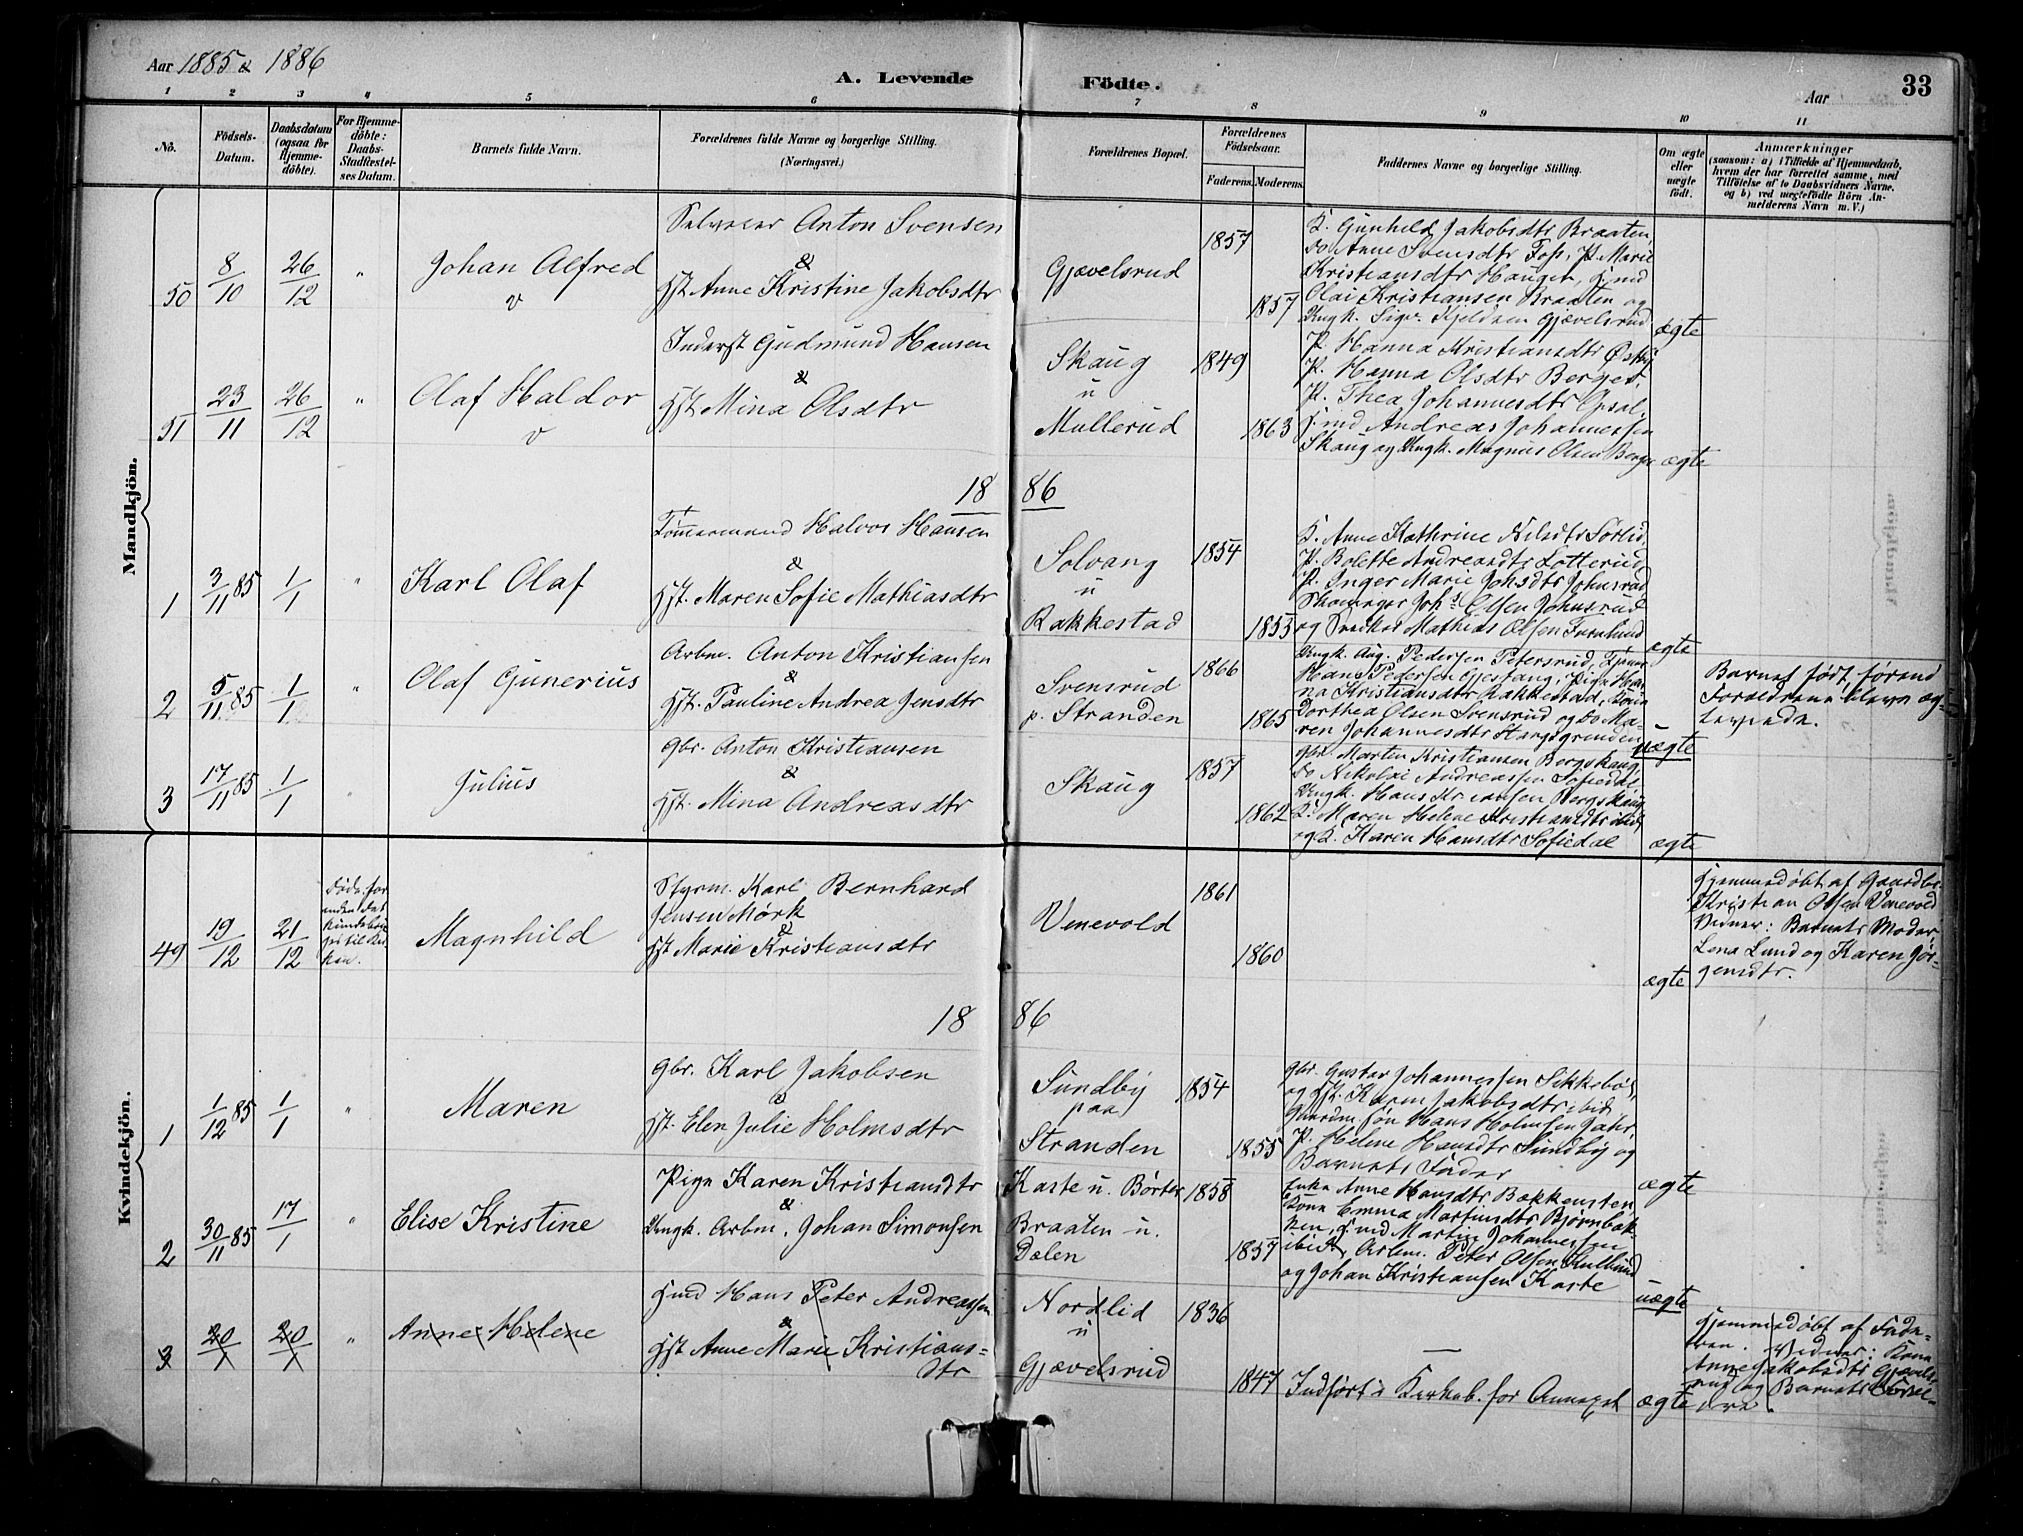 Aar 1885 & 1886
A. Levende Födte.
Aar
33
1 2 3 4 5 6 7 8 9 10 11
No.
Födsels-
Datum.
Daabsdatum
(ogsaa for
Hjemme-
döbte).
For Hjemme-
döbte:
Daabs-
Stadfæstel-
ses Datum.
Barnets fulde Navn.
Forældrenes fulde Navne og borgerlige Stilling.
(Næringsvei.)
Forældrenes Bopæl.
Forældrenes
Födselsaar.
Faderens. Moderens.
Faddernes Navne og borgerlige Stilling.
Om ægte
eller
uægte
födt.
Anmærkninger
(saasom: a) i Tilfælde af Hjemmedaab,
hvem der har forrettet samme, med
Tilföielse af to Daabsvidners Navne.
og b) ved uægtefödte Börn An-
melderens Navn m. V.)
Mandkjön.
50 8/10 26/12 "
Johan Alfred
v
Selveier Anton Svensen
&
Hst. Anne Kristine Jakobsdtr
Gjævelsrud
1857
1857
K. Gunhild Jakobsdtr Braaten,
Do Anne Svensdtr Fos, P. Marie
Kristiansdtr Hauger, Hmd
Olai Kristiansen Braaten og
Ungk. Sigv. Kjeldsen Gjævelsrud
ægte
51 23/11 26/12 "
Olaf Haldor
v
Inderst Gudmund Hansen
&
Hst Mina Olsdtr
Skaug
u
Mullerud
1849
1863
P. Hanna Kristiansdtr Østby
P. Hanna Olsdtr Berger,
P. Thea Johannesdtr Opsal,
Hmd Andreas Johannessen
Skaug og Ungk. Magnus Olsen Berger
ægte
18 86
1 3/11 85 1/1 "
Karl Olaf
Tømmermand Halvor Hansen
&
Hst. Maren Sofie Mathiasdtr
Solvang
u
Rakkestad
1854
1853
K. Anne Kathrine Nilsdtr Sørlid,
P. Bolette Andreasdtr Lotterud,
P. Inger Marie Johsdtr Johnsrud
Skomager Johs Olsen Johnsrud
og Snedker Mathias Olsen
ægte
2 5/11 85 1/1 "
Olaf Gunerius
Arbm. Anton Kristiansen
&
Hst. Pauline Andrea Jensdtr
Svensrud
p. Stranden
1866
1865
Ungk. Aug. Pedersen Petersrud, Tjener
Hans Pedersen Gjestang, Pige Han-
na Kristiansdtr Rakkestad, Kone
Dorthea Olsen Svensrud og Do Ma-
ren Johannesdtr
uægte
Barnet født, førend
Forældrene bleve æg-
teviede.
3 17/11 85 1/1 "
Julius
Gbr. Anton Kristiansen
&
Hst. Mina Andreasdtr
Skaug
1857
1862
Gbr. Martin Kristiansen Bergskaug
Do Nikolai Andreassen Sofiedal
Ungk. Hans Kristiansen Bergskaug
K. Maren Helene Kristiansdtr ibid
og K. Karen Hansdtr Sofiedal
ægte
Kvindekjön.
49 19/12 21/12
Døde for-
inden det
kunde brin-
ges til Kir-
ken.
Magnhild
Styrm. Karl Bernhard
Jensen Mørk
&
Hst Marie Kristiansdtr
Venevold
1861
1860
ægte
Hjemmedøbt af Gaardbr.
Kristian Olsen Venevold
Vidner: Barnets Moder,
Lena Lund og Karen Jør-
gensdtr.
18 86
1 1/12 85 1/1 "
Maren
Gbr. Karl Jakobsen
&
Hst. Elen Julie Holmsdtr
Sundby
paa
Stranden
1854
1855
Gbr. Gustav Johannessen Sikkebøl,
og Hst. Karen Jakobsdtr ibid,
Gaardm. Søn Hans Holmsen Jahr,
P. Helene Hansdtr Sundby og
Barnets Fader
ægte
2 30/11 85 17/1 "
Elise Kristine
Pige Karen Kristiansdtr
&
Ungk. Arbm. Johan Simonsen
Kaste u. Børter
Braaten u.
Dalen
1858
1857
Enke Anne Hansdtr Bakkensten
Kone Emma Martinsdtr Bjørnbak-
ken, Hmd Martin Johannessen
ibid, Arbm. Peter Olsen Kullund
og Johan Kristiansen Kaste
uægte
3 20/1 20/1 "
Anne Helene
Hmd Hans Peter Andreassen
&
Hst Anne Marie Kristians-
dtr
Nordlid
u
Gjævelsrud
1836
1847
Indført i Kirkeb. for Annexet
ægte
Hjemmedøbt af Fade-
ren. Vidner: Kone
Anne Jakobsdtr Gjævels-
rud og Barnets Foræl-
dre.